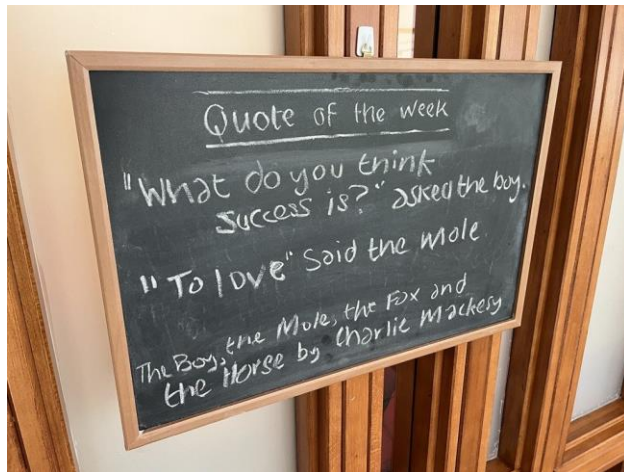 Quote of the week
"What do you think
success is?" asked the boy.
"To love" Said the mole.
The Boy, the Mole, the Fox and
the Horse by Charlie Mackesy